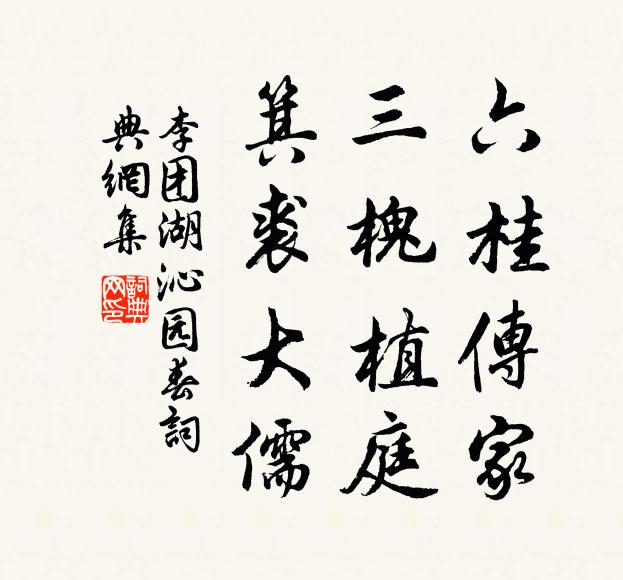 六桂傳家
三槐植庭
箕裘大儒
李团湖沁园春詞
典網集
詞典
网印